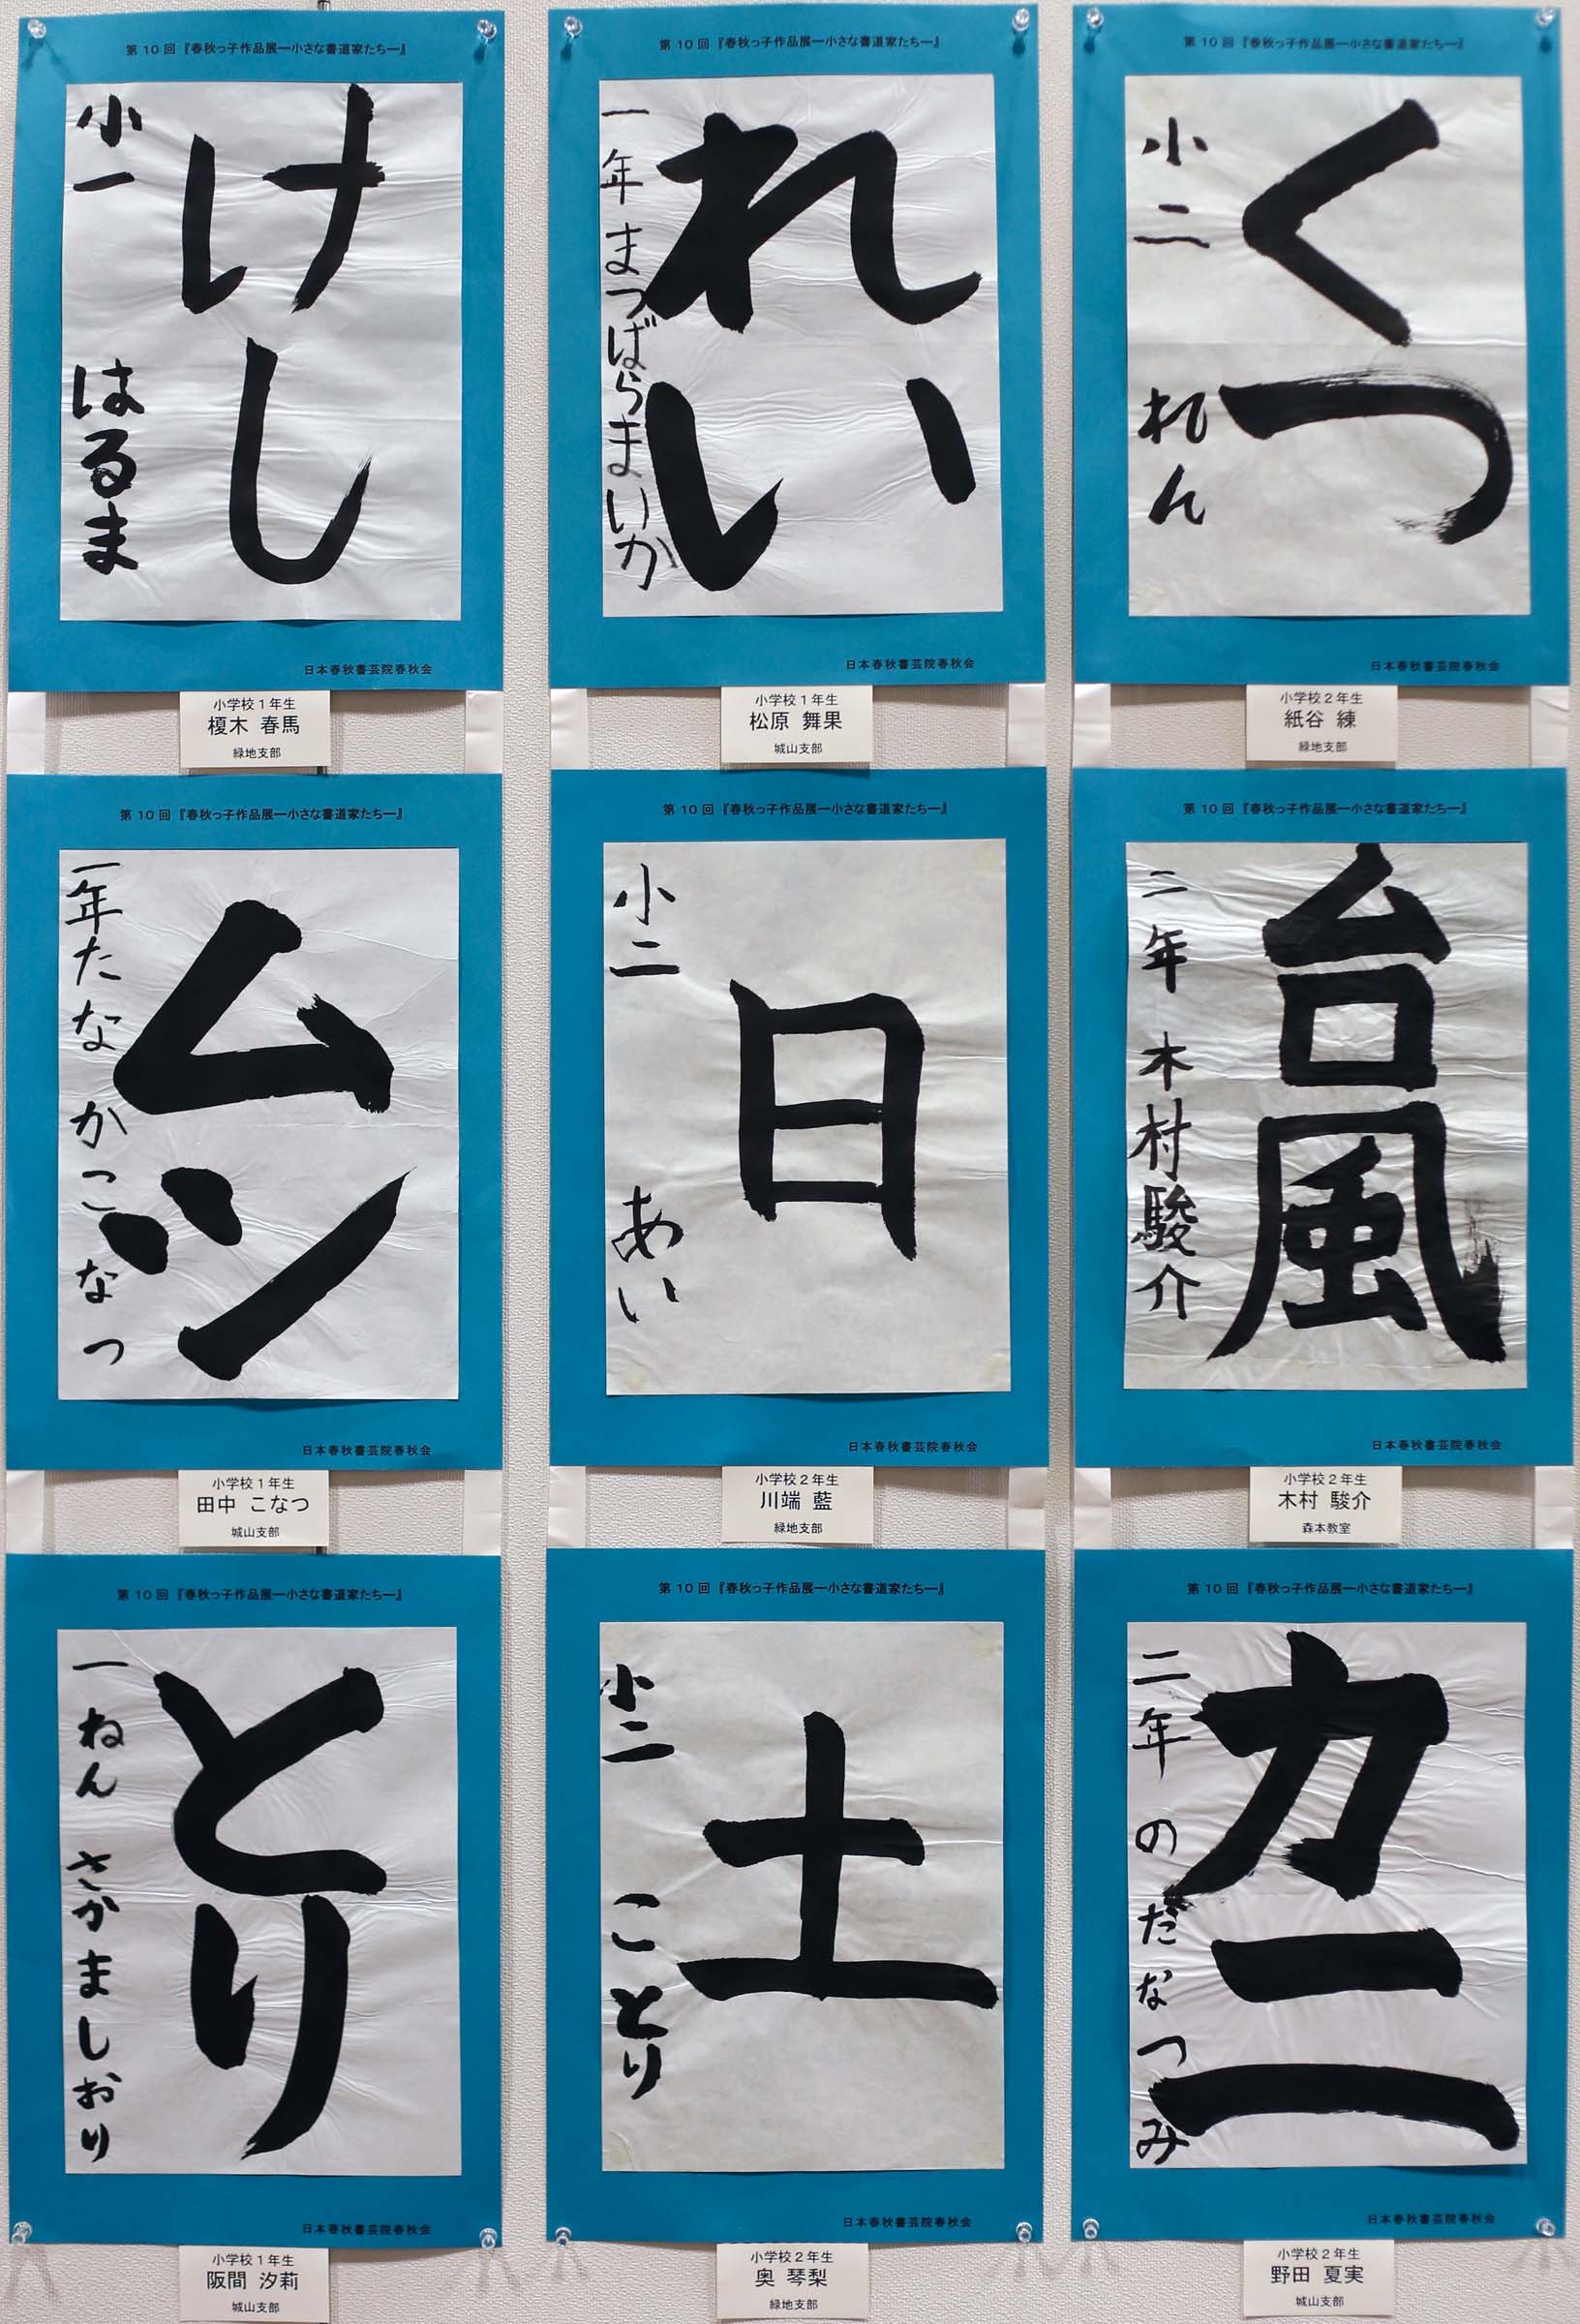 第10回『春秋っ子作品展―小さな書道家たち―』
けし
小一 はるま
日本春秋書芸院春秋会
小学校1年生
榎木 春馬
緑地支部
第10回『春秋っ子作品展―小さな書道家たち―』
れい
一年 まつばらまいか
日本春秋書芸院春秋会
小学校1年生
松原 舞果
城山支部
第10回『春秋っ子作品展―小さな書道家たち―』
くつ
小二 れん
日本春秋書芸院春秋会
小学校2年生
紙谷 練
緑地支部
第10回『春秋っ子作品展―小さな書道家たち―』
ムシ
一年 たなかこなつ
日本春秋書芸院春秋会
小学校1年生
田中 こなつ
城山支部
第10回『春秋っ子作品展―小さな書道家たち―』
日
小二 あい
日本春秋書芸院春秋会
小学校2年生
川端 藍
緑地支部
第10回『春秋っ子作品展―小さな書道家たち―』
台風
二年 木村駿介
日本春秋書芸院春秋会
小学校2年生
木村 駿介
森本教室
第10回『春秋っ子作品展―小さな書道家たち―』
とり
一ねん さかましおり
日本春秋書芸院春秋会
小学校1年生
阪間 汐莉
城山支部
第10回『春秋っ子作品展―小さな書道家たち―』
土
小二 ことり
日本春秋書芸院春秋会
小学校2年生
奥 琴梨
緑地支部
第10回『春秋っ子作品展―小さな書道家たち―』
カニ
二年 のだなつみ
日本春秋書芸院春秋会
小学校2年生
野田 夏実
城山支部